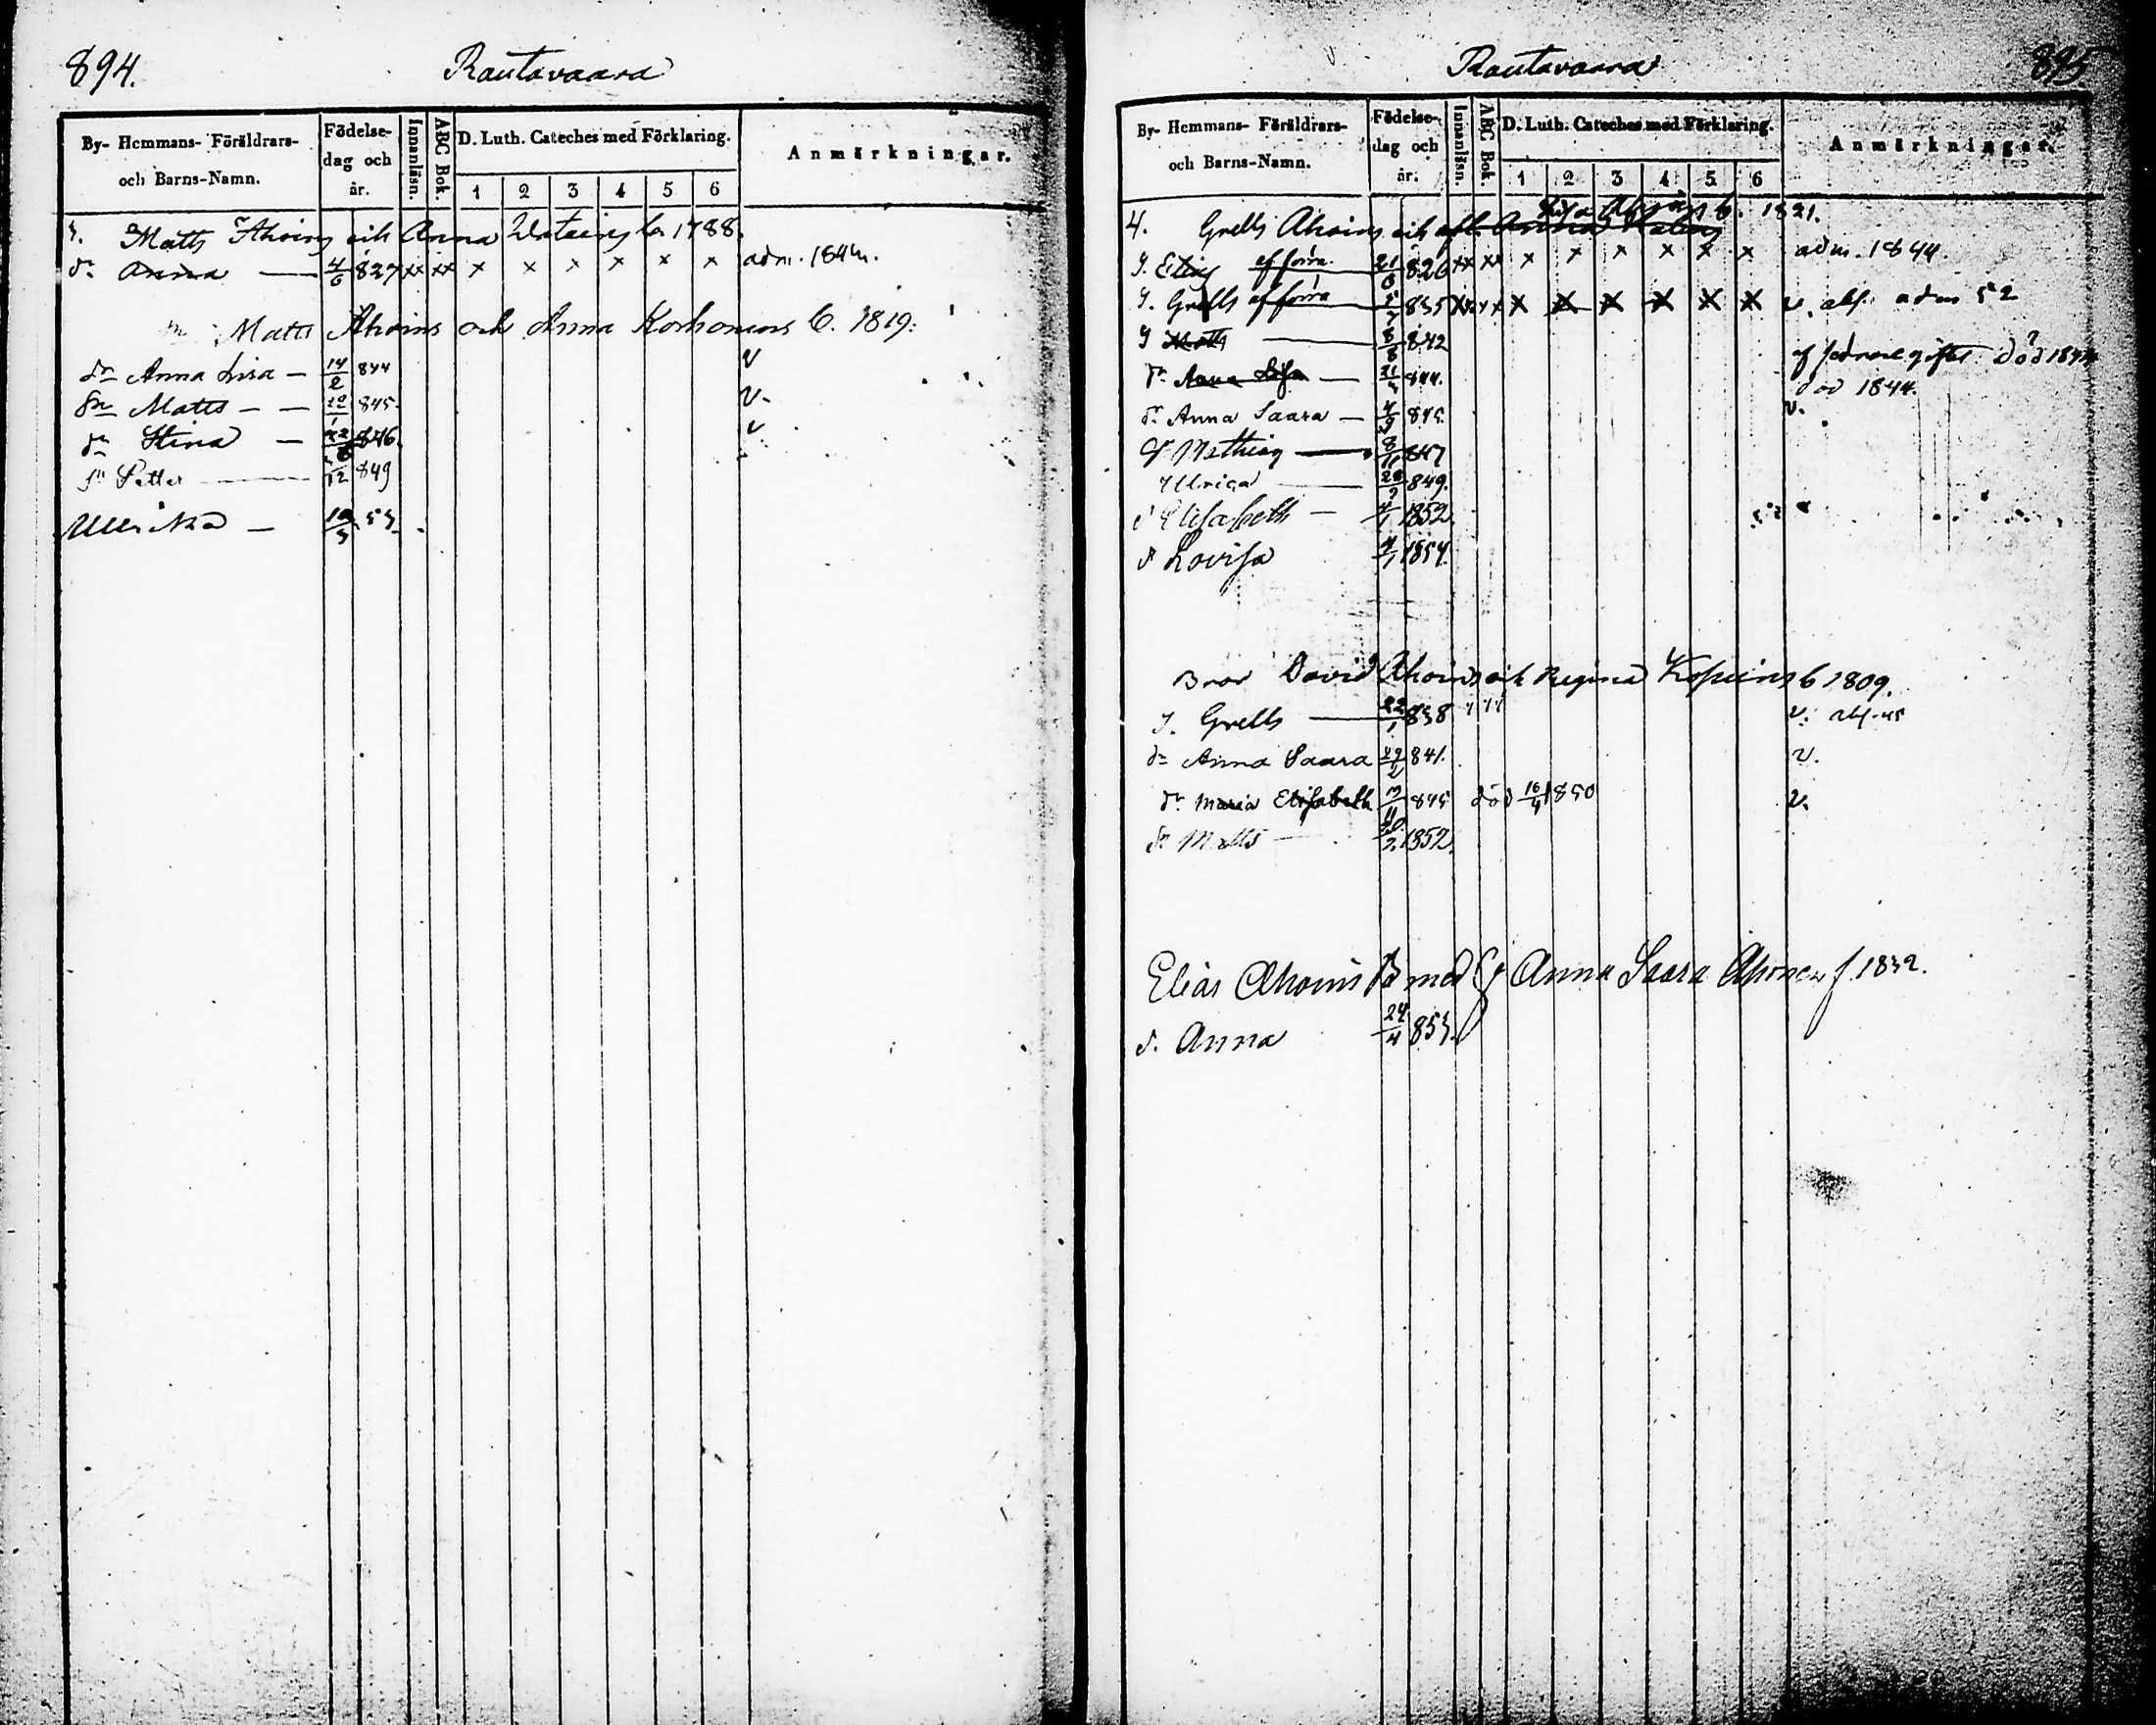 894.
Rautavaara
By- Hemmans- Föräldrars- och Barns-Namn.
Födelse- dag och år.
Innanläsn.
ABC Bok.
D. Luth. Cateches med Förklaring.
1 2 3 4 5 6
Anmärkningar.
Matts Ahoins och Anna b. 1788.
dr Anna — 4/6 827 xx xx x x x x x x adm. 1844.
Matts Ahoins och Anna Korhonens b. 1819.
dr Anna Lisa — 14/2 844 v
Sn Matts — — 845. v.
dr Stina — 846. v
sn Petter — /12 849
Ullrika — 53.
Rautavaara
895.
By- Hemmans- Föräldrars- och Barns-Namn.
Födelse- dag och år.
Innanläsn.
ABC Bok.
D. Luth. Cateches med Förklaring.
1 2 3 4 5 6
Anmärkningar.
4. Grells Ahoins och afl. Anna b. 1821.
S. Elias af förra 21/8 826 xx xx x x x x x x adm. 1844.
S. Grells af förra 835 x x x x x x v. abs. adm 52
S Matts — 8/8 842 af sednare giftet död 1844
dr Anna Lisa — 844. död 1844.
dr Anna Saara — 4/9 845. v.
Mathias — 8/11 847
Ulrica — 849.
d Elisabeth — 1852.
d Lovisa 1854.
Bror David Ahoins och Regina b 1809.
S. Grells — 22/1 838 v. abs.
dr Anna Saara 841. v.
dr Maria Elisabeth 845 död 16/4 1850 v.
Sn Matts — 1852.
Elias Ahoins med Anna Saara Ahonen f. 1832.
d. Anna 24/4 853.